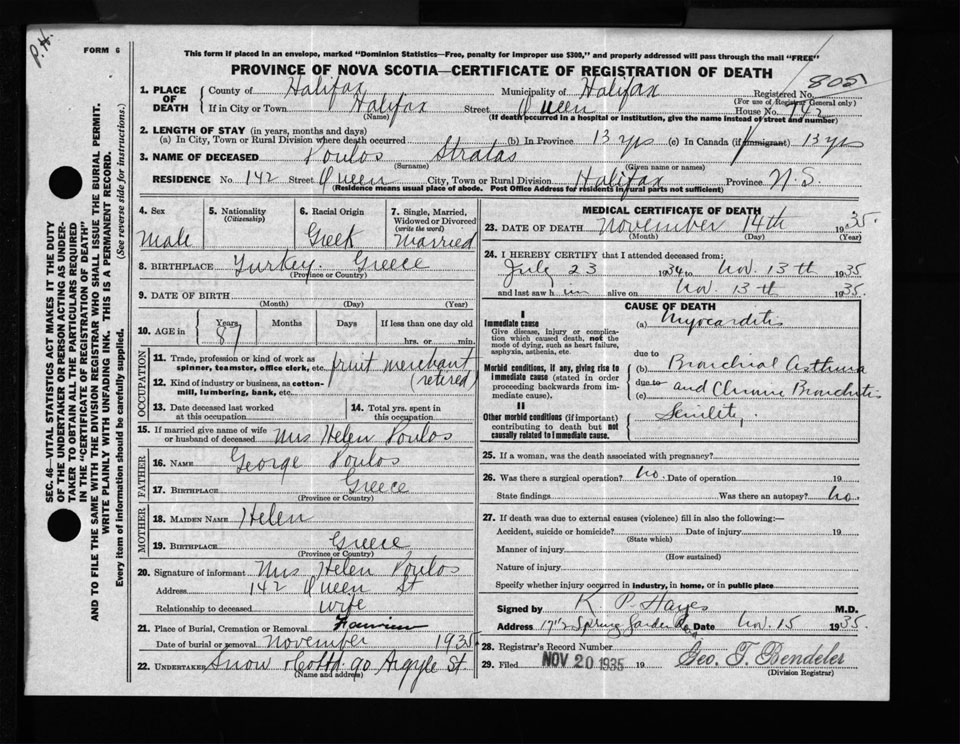 P.H.
FORM 6
This form if placed in an envelope, marked "Dominion Statistics—Free, penalty for improper use $300," and properly addressed will pass through the mail "FREE"
PROVINCE OF NOVA SCOTIA—CERTIFICATE OF REGISTRATION OF DEATH
SEC. 46—VITAL STATISTICS ACT MAKES IT THE DUTY
OF THE UNDERTAKER OR PERSON ACTING AS UNDER-
TAKER TO OBTAIN ALL THE PARTICULARS REQUIRED
IN THE "CERTIFICATE OF REGISTRATION OF DEATH"
AND TO FILE THE SAME WITH THE DIVISION REGISTRAR WHO SHALL ISSUE THE BURIAL PERMIT.
WRITE PLAINLY WITH UNFADING INK. THIS IS A PERMANENT RECORD.
Every item of information should be carefully supplied. (See reverse side for instructions.)
1. PLACE OF DEATH County of Halifax Municipality of Halifax Registered No. 805
(For use of Registrar General only)
If in City or Town Halifax Street Queen House No. 142
(Name) (If death occurred in a hospital or institution, give the name instead of street and number)
2. LENGTH OF STAY (in years, months and days)
(a) In City, Town or Rural Division where death occurred (b) In Province 13 yrs (c) In Canada (if immigrant) 13 yrs
3. NAME OF DECEASED Poulos Stratas
(Surname) (Given name or names)
RESIDENCE No. 142 Street Queen City, Town or Rural Division Halifax Province N.S.
(Residence means usual place of abode. Post Office Address for residents in rural parts not sufficient)
4. Sex Male
5. Nationality (Citizenship)
6. Racial Origin Greek
7. Single, Married, Widowed or Divorced (write the word) Married
8. BIRTHPLACE Turkey Greece
(Province or Country)
9. DATE OF BIRTH
(Month) (Day) (Year)
10. AGE in Years 87 Months Days If less than one day old
hrs. or min.
OCCUPATION
11. Trade, profession or kind of work as spinner, teamster, office clerk, etc. merchant
12. Kind of industry or business, as cotton-mill, lumbering, bank, etc. (retired)
13. Date deceased last worked at this occupation
14. Total yrs. spent in this occupation
15. If married give name of wife or husband of deceased Mrs Helen Poulos
FATHER
16. NAME George Poulos
17. BIRTHPLACE Greece
(Province or Country)
MOTHER
18. MAIDEN NAME Helen
19. BIRTHPLACE Greece
(Province or Country)
20. Signature of informant Mrs Helen Poulos
Address 142 Queen St
Relationship to deceased wife
21. Place of Burial, Cremation or Removal Fairview
Date of burial or removal November 1935
22. UNDERTAKER Snow 90 Argyle St.
(Name and address)
MEDICAL CERTIFICATE OF DEATH
23. DATE OF DEATH November 14th 1935.
(Month) (Day) (Year)
24. I HEREBY CERTIFY that I attended deceased from:
July 23 1934 to Nov. 13th 1935
and last saw him alive on Nov. 13th 1935.
CAUSE OF DEATH
I
Immediate cause
Give disease, injury or complication which caused death, not the mode of dying, such as heart failure, asphyxia, asthenia, etc.
(a) Myocarditis
due to
Morbid conditions, if any, giving rise to immediate cause (stated in order proceeding backwards from immediate cause)
(b) Bronchial Asthma
due to
(c) and Chronic Bronchitis
II
Other morbid conditions (if important) contributing to death but not causally related to immediate cause.
Senility,
25. If a woman, was the death associated with pregnancy?
26. Was there a surgical operation? No. Date of operation 19
State findings Was there an autopsy? No.
27. If death was due to external causes (violence) fill in also the following:—
Accident, suicide or homicide? Date of injury 19
(State which)
Manner of injury
(How sustained)
Nature of injury
Specify whether injury occurred in industry, in home, or in public place
Signed by K P. Hayes M.D.
Address Spring Garden Rd Date Nov. 15 1935.
28. Registrar's Record Number
29. Filed NOV 20 1935 19 Geo. T. Bendeler
(Division Registrar)